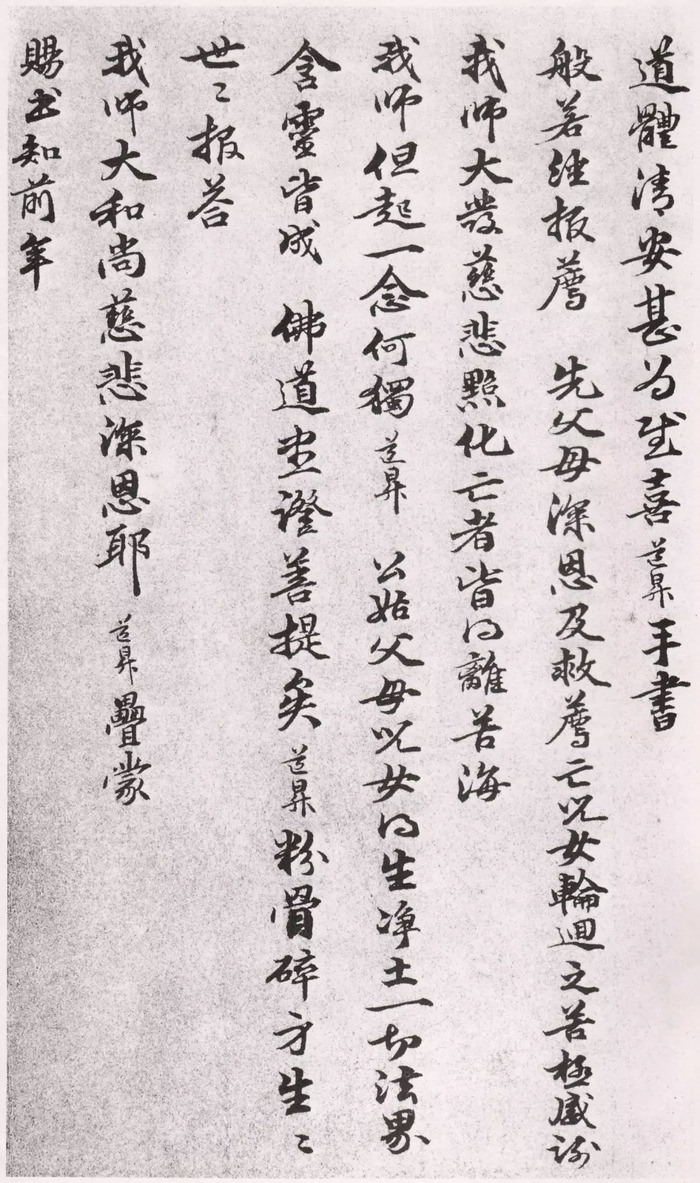 道體清安甚为感喜道昇手書
般若経报薦 先父母深恩及救薦亡児女輪迴之苦極感謝
我师大發慈悲點化亡者皆得離苦海
我师但起一念何獨道昇 公姑父母児女得生净土一切法界
含靈皆成 佛道盡證善提矣道昇粉骨碎身生〻
世〻报荅
我师大和尚慈悲深恩耶道昇疊蒙
賜书知前年